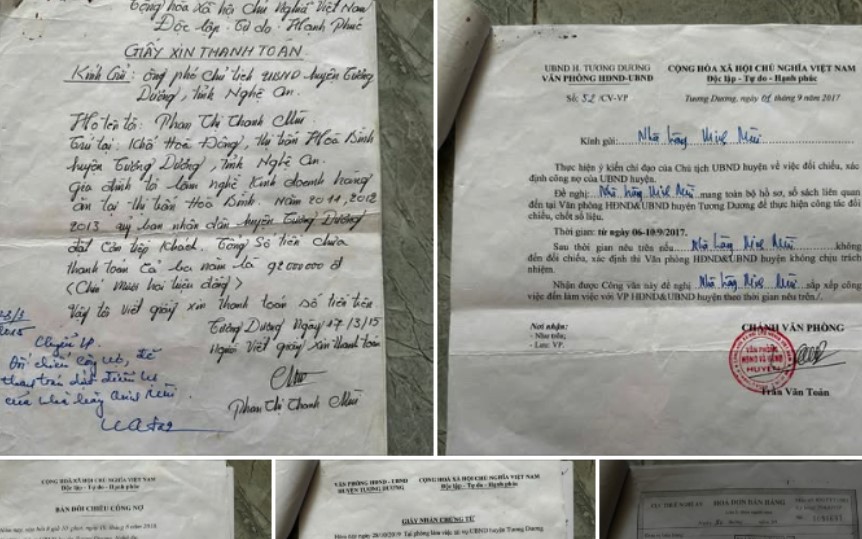 Cộng hòa Xã hội Chủ Nghĩa Việt Nam
Độc lập - Tự do - Hạnh Phúc
GIẤY XIN THANH TOÁN
Kính Gửi: ông phó Chủ tịch UBND huyện Tương
Dương, tỉnh Nghệ An.
Họ tên tôi: Phan Thị Thanh Mùi
Trú tại: Khối Hoà Đông, thị trấn Hoà Bình
huyện Tương Dương, tỉnh Nghệ An.
gia đình tôi làm nghề Kinh doanh hàng
ăn tại thị trấn Hoà Bình. Năm 2011, 2012
2013 uỷ ban nhân dân huyện Tương Dương
đặt Cơm tiếp Khách. Tổng Số tiền chưa
thanh toán Cả ba năm là 92000000đ
(Chín mươi hai triệu đồng)
Vậy tôi viết giấy xin thanh toán số tiền trên
Tương Dương Ngày 17/3/15
Người viết giấy xin thanh toán
Phan Thị Thanh Mùi
23/3
2015
Chuyển VP.
đối chiếu công nợ, để
thanh toán dứt điểm nợ
của nhà hàng
UBND H. TƯƠNG DƯƠNG
VĂN PHÒNG HĐND-UBND
Số: 52 /CV-VP
CỘNG HÒA XÃ HỘI CHỦ NGHĨA VIỆT NAM
Độc lập - Tự do - Hạnh phúc
Tương Dương, ngày 01 tháng 9 năm 2017
Kính gửi: Nhà hàng Minh Mùi
Thực hiện ý kiến chỉ đạo của Chủ tịch UBND huyện về việc đối chiếu, xác
định công nợ của UBND huyện.
Đề nghị: Nhà hàng Minh Mùi mang toàn bộ hồ sơ, sổ sách liên quan
đến tại Văn phòng HĐND&UBND huyện Tương Dương để thực hiện công tác đối
chiếu, chốt số liệu.
Thời gian: từ ngày 06-10/9/2017.
Sau thời gian nêu trên nếu Nhà hàng Minh Mùi không
đến đối chiếu, xác định thì Văn phòng HĐND&UBND huyện không chịu trách
nhiệm.
Nhận được Công văn này đề nghị Nhà hàng Minh Mùi sắp xếp công
việc đến làm việc với VP HĐND&UBND huyện theo thời gian nêu trên./.
Nơi nhận:
- Như trên;
- Lưu: VP.
CHÁNH VĂN PHÒNG
VĂN PHÒNG
HĐND VÀ UBND
HUYỆN
Trần Văn Toản
CỘNG HOÀ XÃ HỘI CHỦ NGHĨA VIỆT NAM
Độc lập - Tự do - Hạnh phúc
BẢN ĐỐI CHIẾU CÔNG NỢ
VĂN PHÒNG HĐND - UBND
HUYỆN TƯƠNG DƯƠNG
CỘNG HÒA XÃ HỘI CHỦ NGHĨA VIỆT NAM
Độc lập - Tự do - Hạnh phúc
GIẤY NHẬN CHỨNG TỪ
Hôm nay ngày 28/10/2019 Tại phòng làm việc UBND huyện Tương Dương
HOÁ ĐƠN BÁN HÀNG